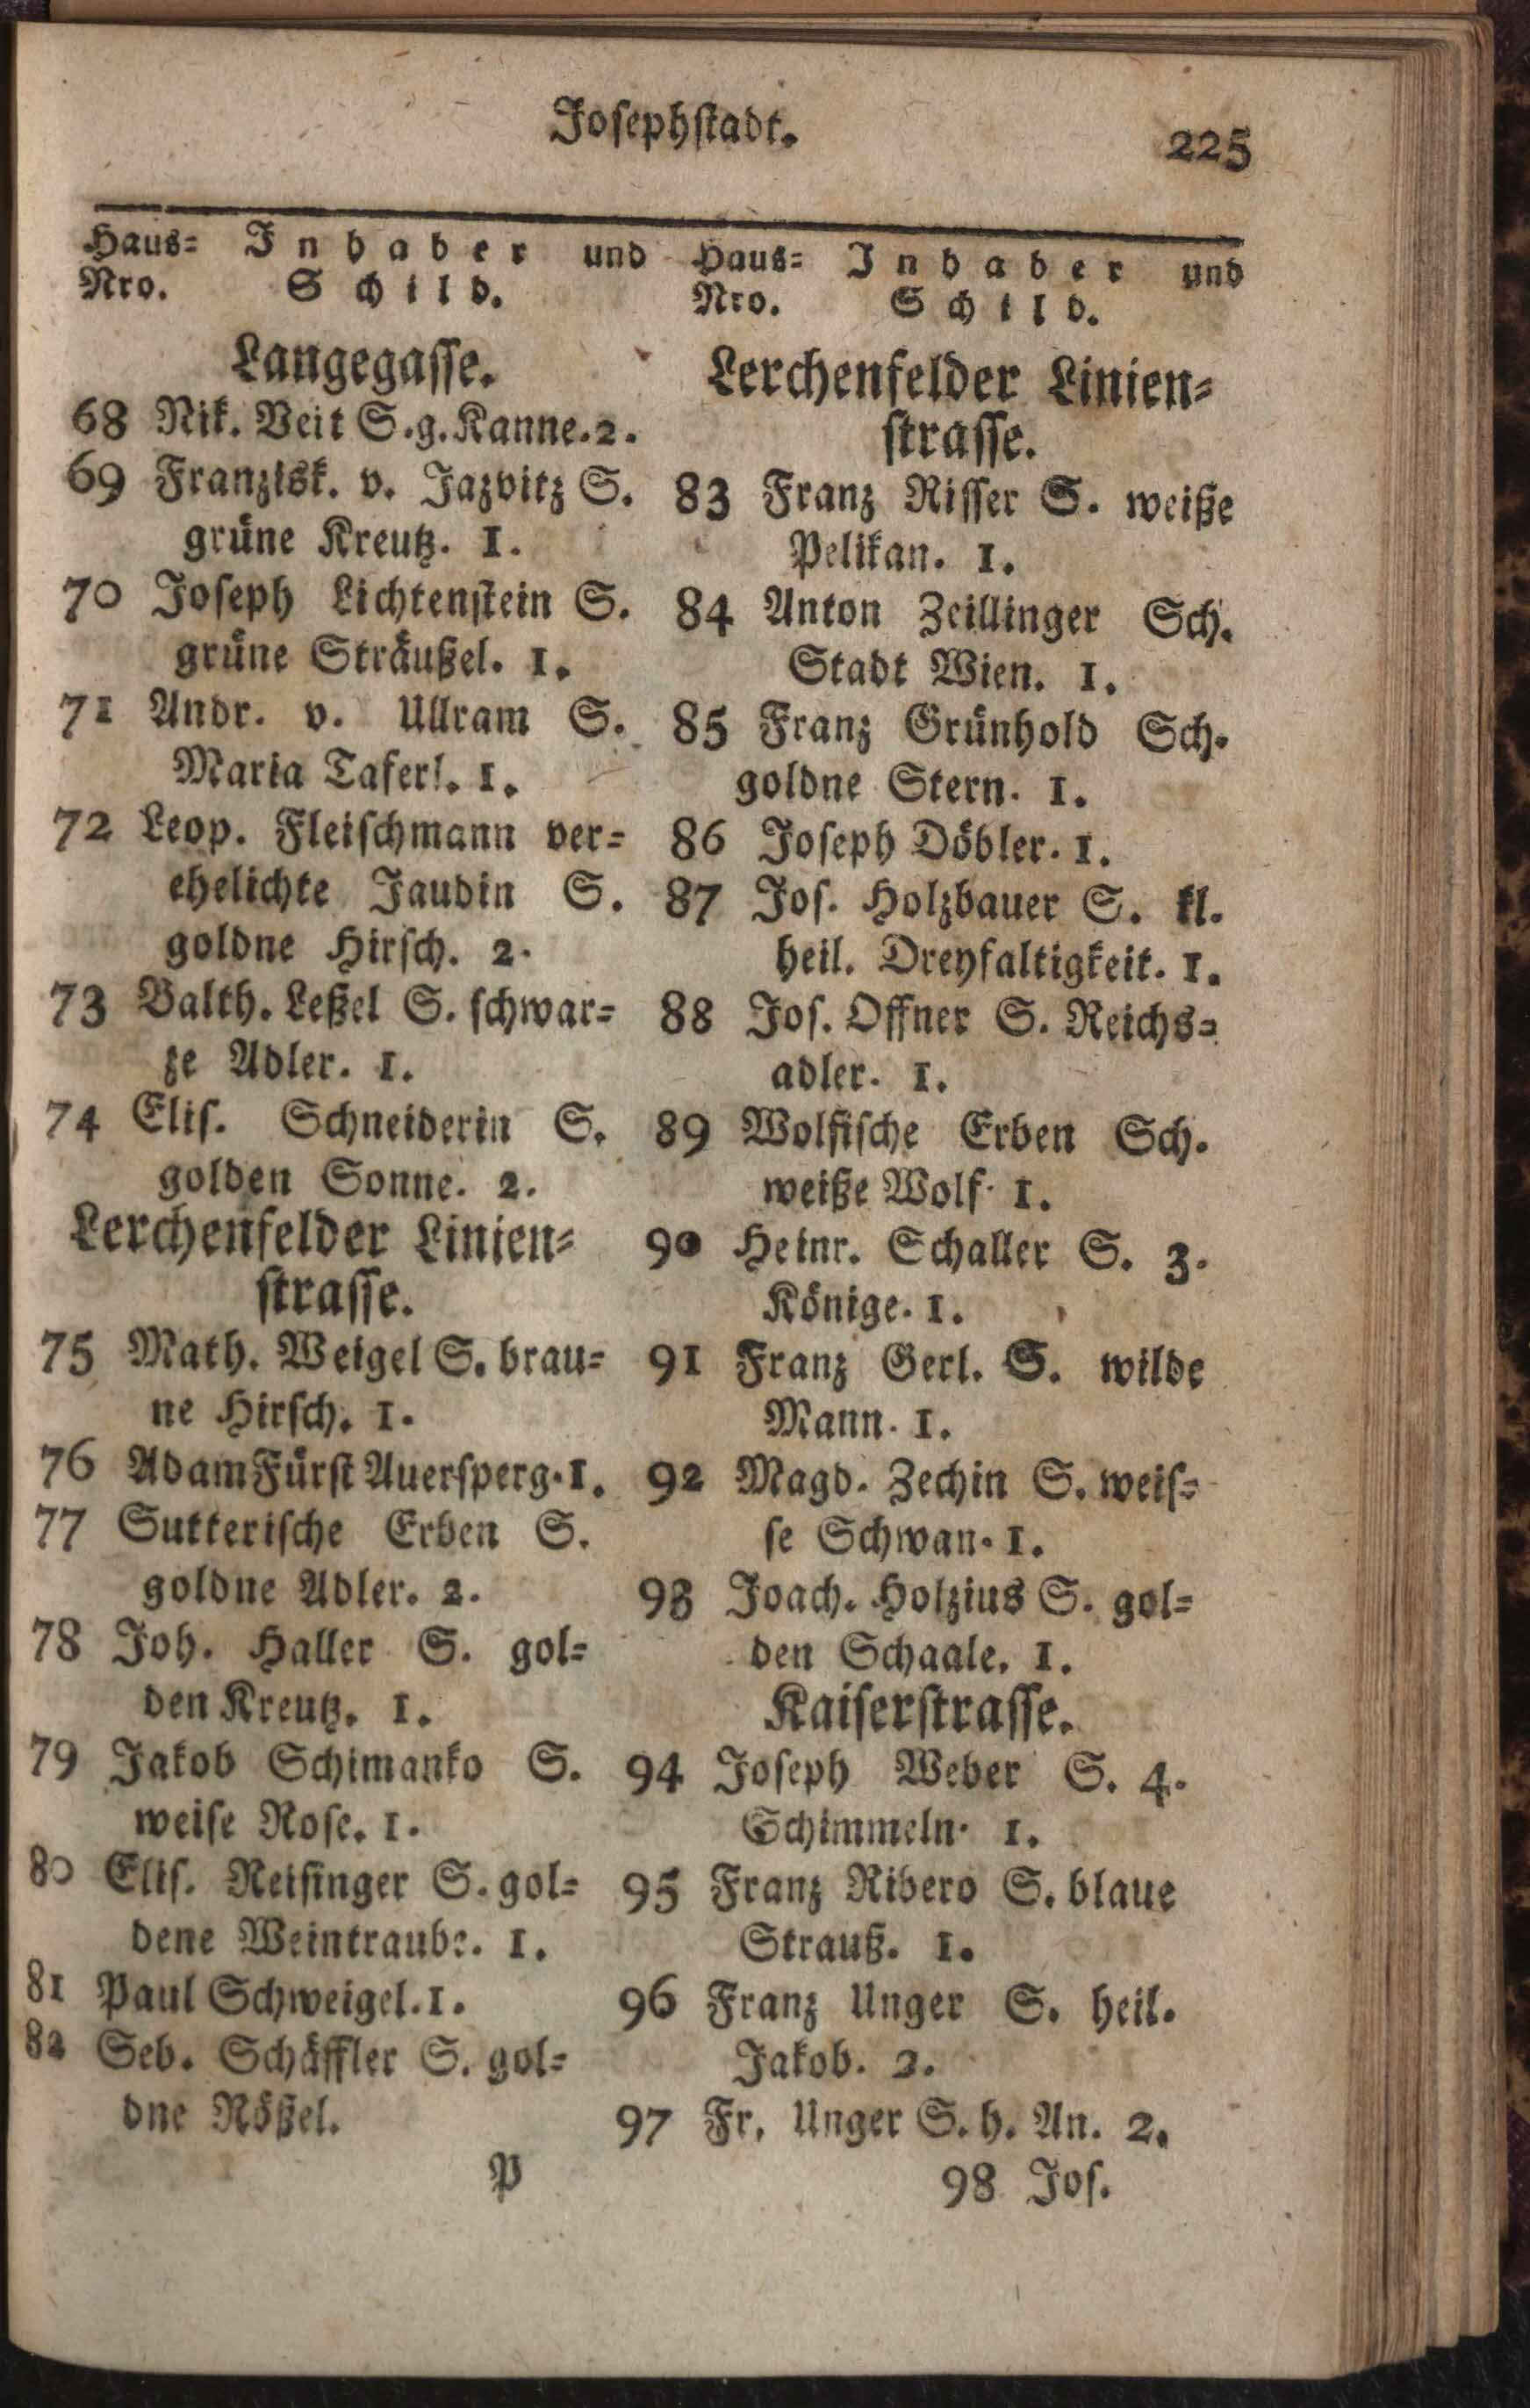 Josephstadt.
225
Haus= Inhaber und
Nro. Schild.
Langegasse.
68 Nik. Veit S. g. Kanne. 2.
69 Franzisk. v. Jazvitz S.
grüne Kreutz. 1.
70 Joseph Lichtenstein S.
grüne Sträußel. 1.
71 Andr. v. Ullram S.
Maria Taferl. 1.
72 Leop. Fleischmann ver=
ehelichte Jaudin S.
goldne Hirsch. 2.
73 Balth. Leßel S. schwar=
ze Adler. 1.
74 Elis. Schneiderin S.
golden Sonne. 2.
Lerchenfelder Linien=
strasse.
75 Math. Weigel S. brau=
ne Hirsch. 1.
76 Adam Fürst Auersperg. 1.
77 Sutterische Erben S.
goldne Adler. 2.
78 Joh. Haller S. gol=
den Kreutz. 1.
79 Jakob Schimanko S.
weise Rose. 1.
80 Elis. Reisinger S. gol=
dene Weintraube. 1.
81 Paul Schweigel. 1.
82 Seb. Schäffler S. gol=
dne Rößel.
P
Haus= Inhaber und
Nro. Schild.
Lerchenfelder Linien=
strasse.
83 Franz Risser S. weiße
Pelikan. 1.
84 Anton Zeillinger Sch.
Stadt Wien. 1.
85 Franz Grünhold Sch.
goldne Stern. 1.
86 Joseph Döbler. 1.
87 Jos. Holzbauer S. kl.
heil. Dreyfaltigkeit. 1.
88 Jos. Offner S. Reichs=
adler. 1.
89 Wolfische Erben Sch.
weiße Wolf. 1.
90 Heinr. Schaller S. 3.
Könige. 1.
91 Franz Gerl. S. wilde
Mann. 1.
92 Magd. Zechin S. weis=
se Schwan. 1.
93 Joach. Holzius S. gol=
den Schaale. 1.
Kaiserstrasse.
94 Joseph Weber S. 4.
Schimmeln. 1.
95 Franz Ribero S. blaue
Strauß. 1.
96 Franz Unger S. heil.
Jakob. 2.
97 Fr. Unger S. h. An. 2.
98 Jos.